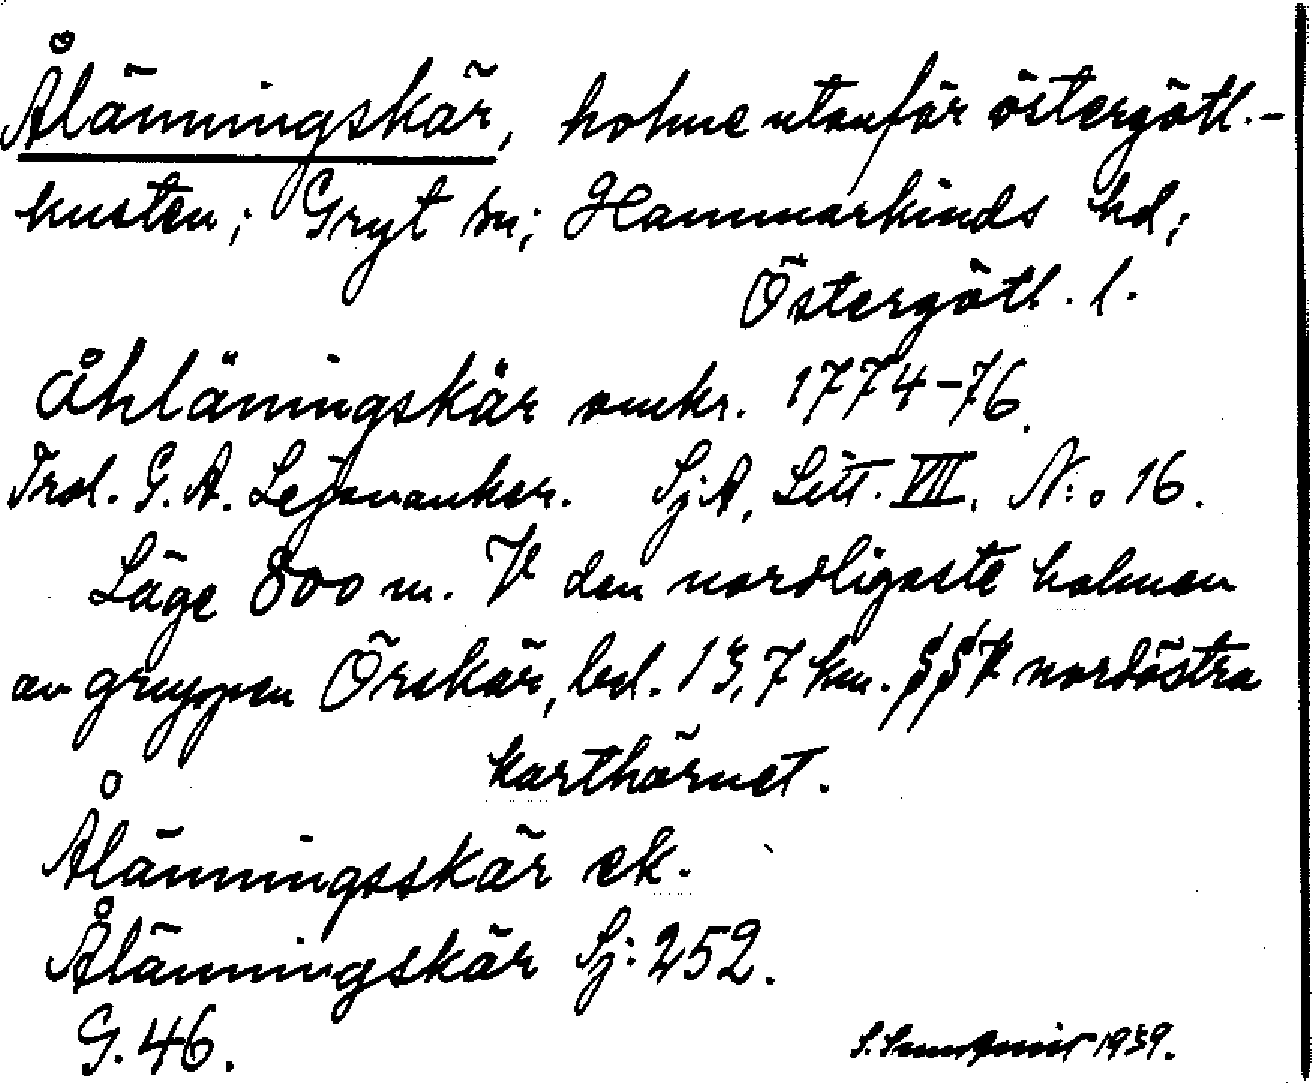 Ålänningskär, holme utanför östergötl.-
kusten; Gryt sn; Hammarkinds hd;
Östergötl. l.
Åhläningskär omkr. 1774-76.
Trol. G. A. Lejonanker. SjA, Litt. VII. N:o 16.
Läge 800 m. V den nordligaste holmen
av gruppen Örskär, bel. 13,7 km. SSV nordöstra
karthörnet.
Ålänningsskär ek.
Ålänningskär Sj: 252.
G. 46.
S. 1939.